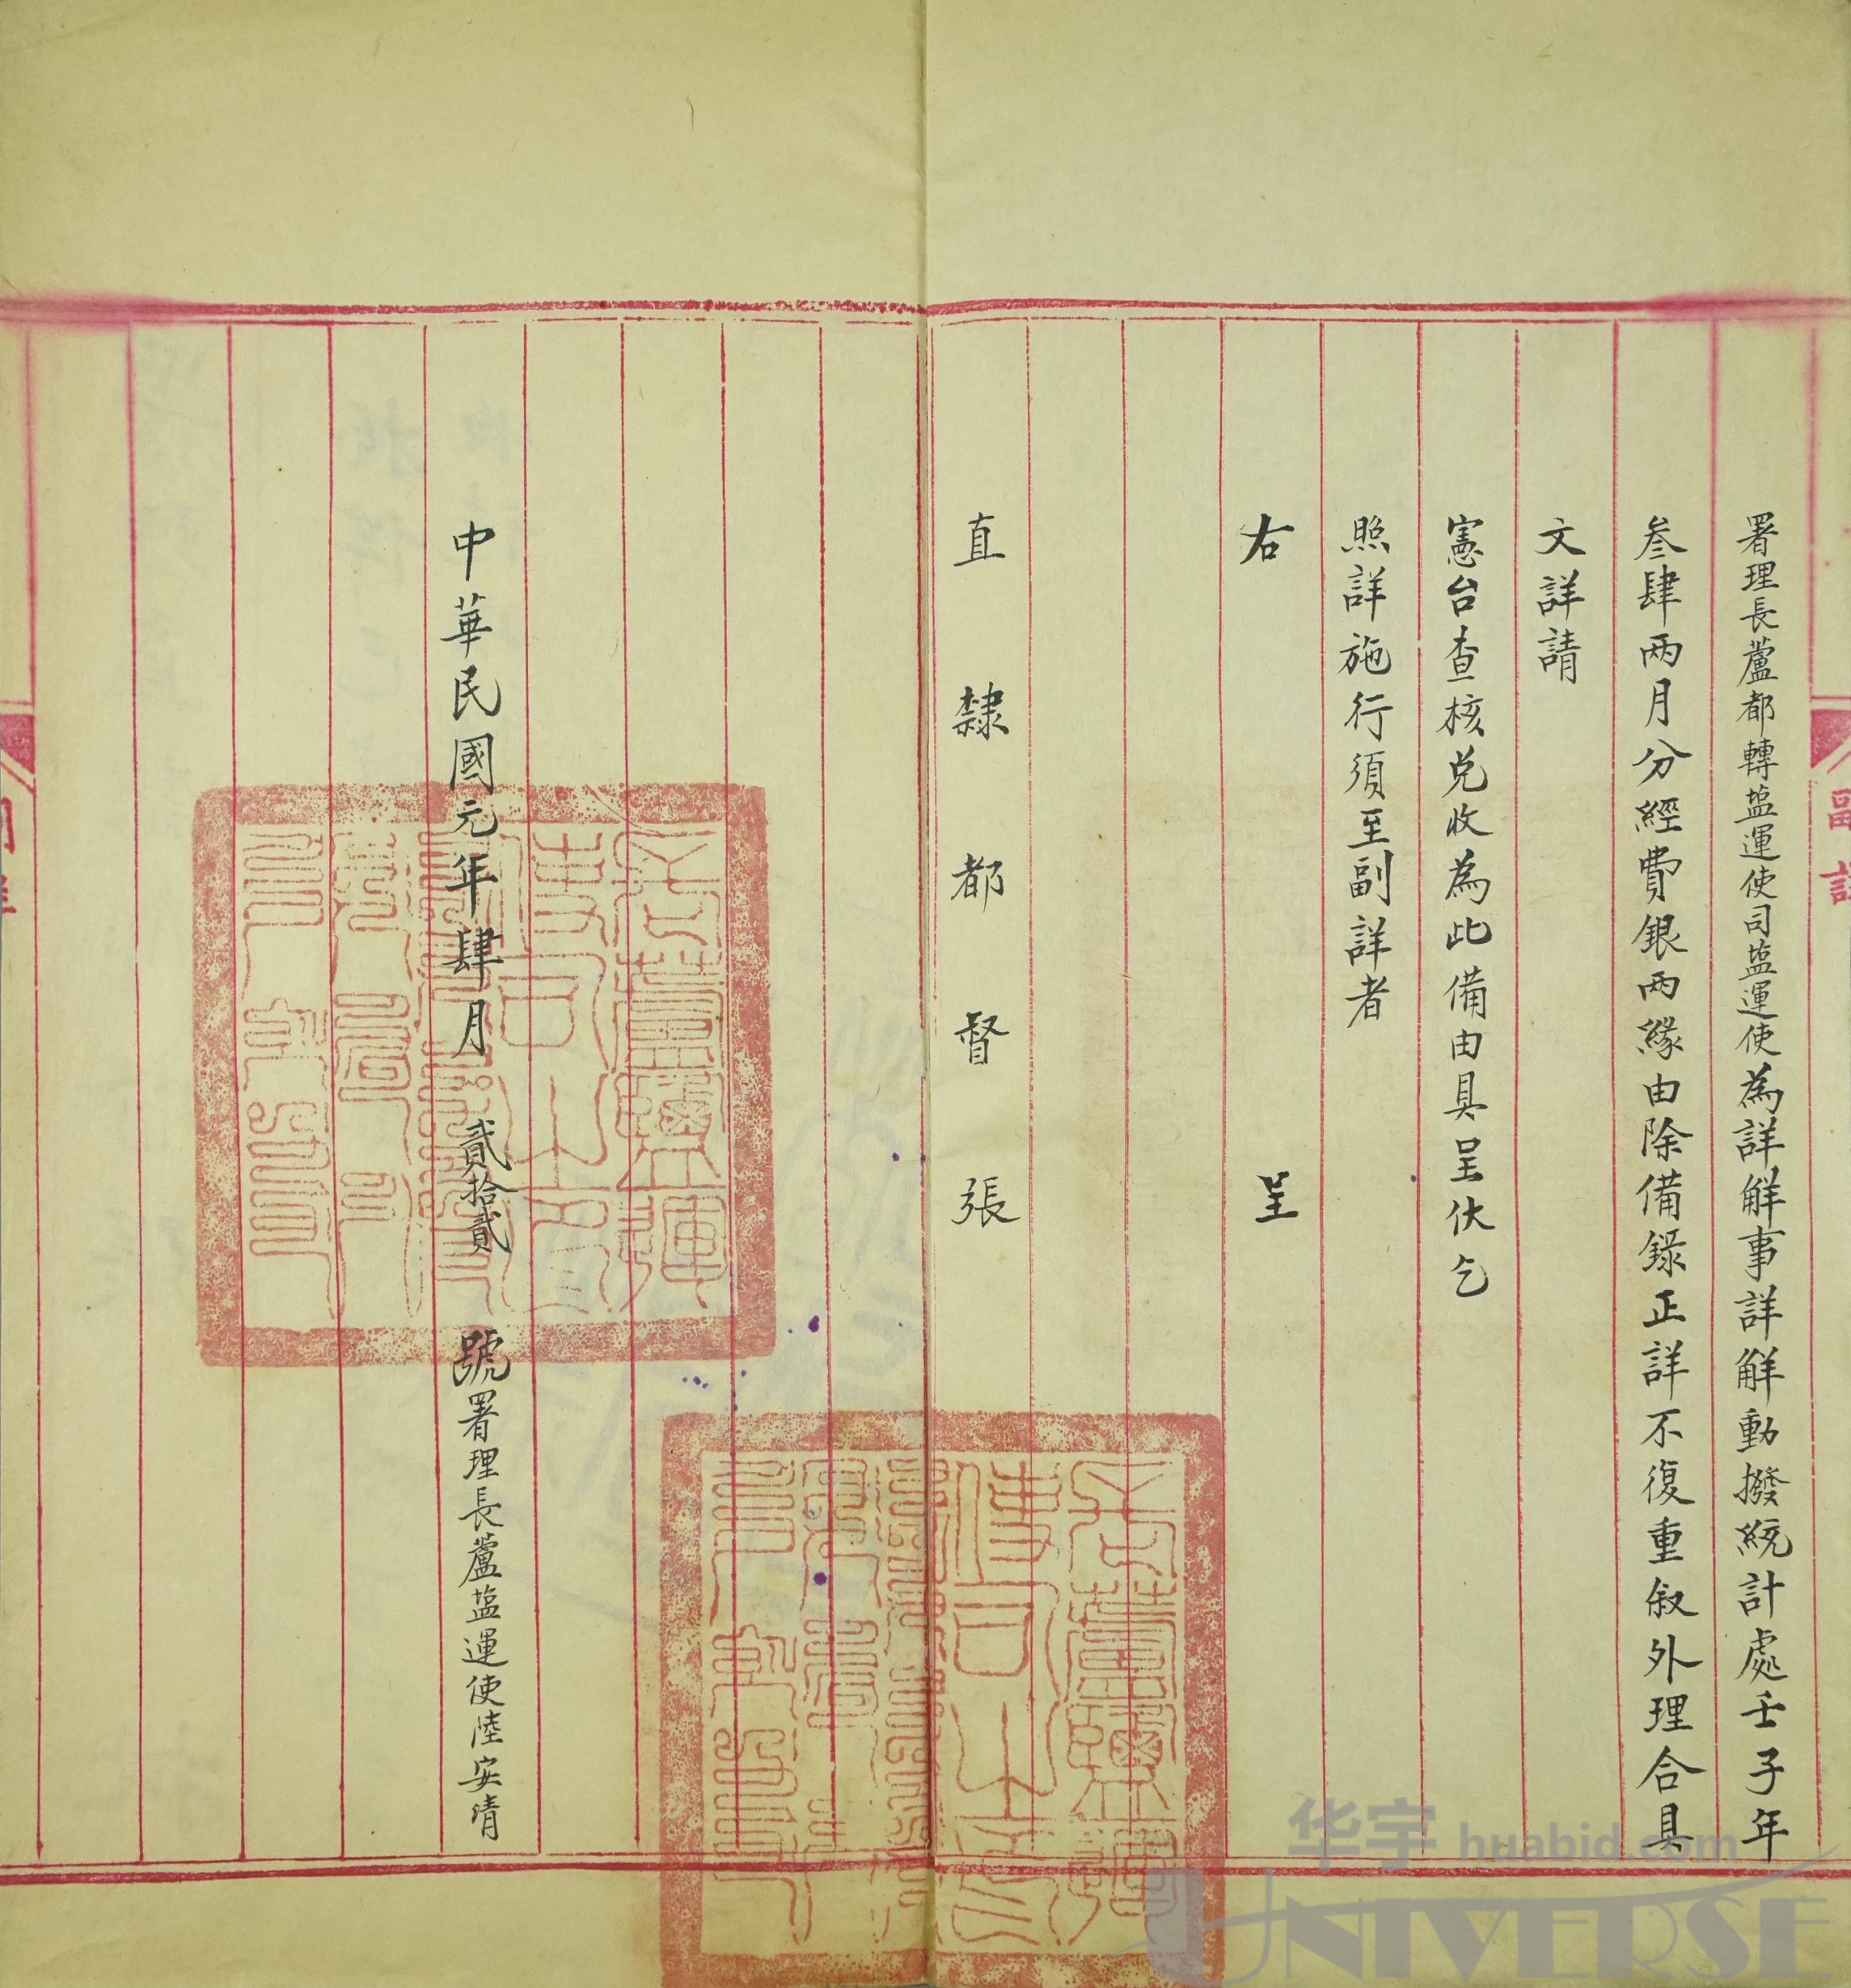 署理長蘆都轉塩運使司塩運使為詳解事詳解動撥統計處壬子年
叁肆兩月分經費銀兩緣由除備錄正詳不復重叙外理合具
文詳請
憲台查核兌收為此備由具呈伏乞
照詳施行須至副詳者
右呈
直隸都督張
中華民國元年肆月貳拾貳號署理長蘆塩運使陸安清
副詳
华宇 huabid.com
UNIVERSE